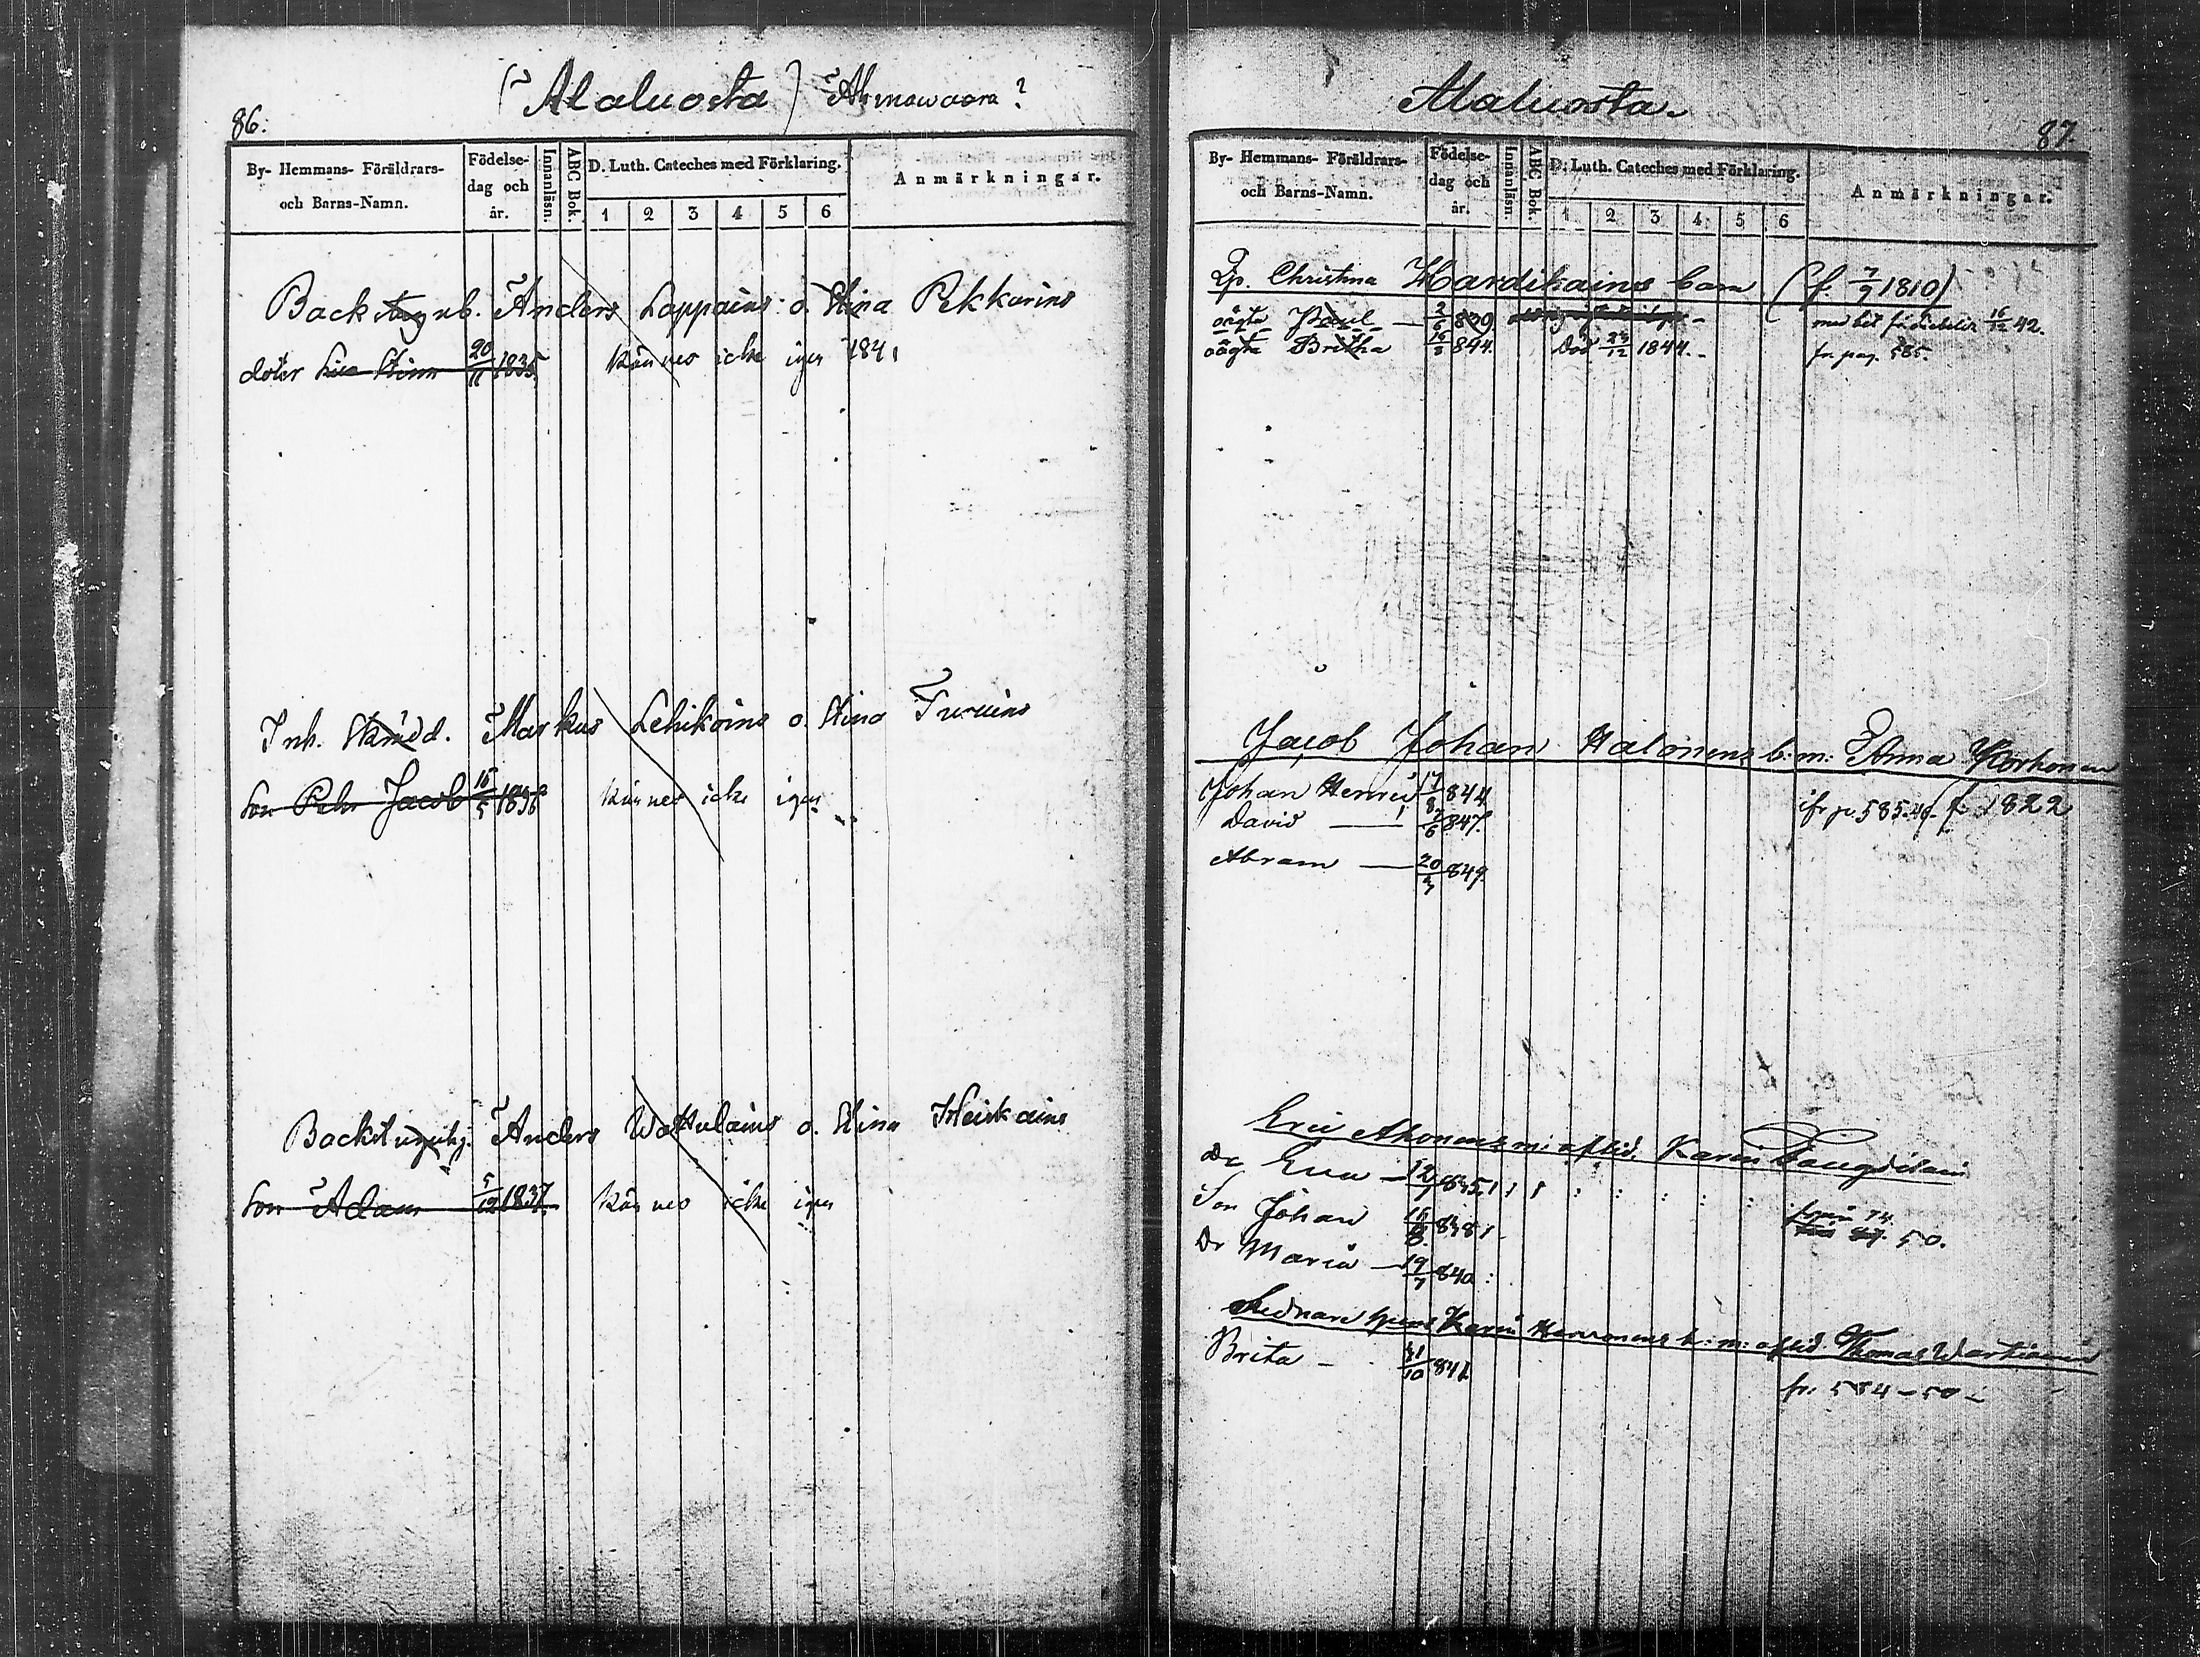 86.
(Alaluosta) Ahmawaara?
By- Hemmans- Föräldrars- och Barns-Namn.
Födelse- dag och år.
Innanläsn.
ABC Bok.
D. Luth. Cateches med Förklaring.
1 2 3 4 5 6
Anmärkningar.
Backstugub. Anders Lappains o. Stina Pekkarins
doter Lisa Stina 20/11 1835 kännes icke igen 1841
Inh. Skrädd. Markus Lehikoins o. Stina Turuins
Son Pehr Jacob 16/5 1836 kännes icke igen
Anders o. Stina Heiskains
Son Adam 5/12 1837 kännes icke igen
Alaluosta.
87.
By- Hemmans- Föräldrars- och Barns-Namn.
Födelse- dag och år.
Innanläsn.
ABC Bok.
D. Luth. Cateches med Förklaring.
1 2 3 4 5 6
Anmärkningar.
Qp. Christina Hardikains barn (f. 7/9 1810)
oägta Paul 2/6 839 med bet 16/12 42.
oägta Britha 16/3 844. Död 23/12 1844. fr. pag. 585.
Jacob Johan Halonens b: m: Anna Korhonen
Johan Henric 17/8 844 f: 1822
David 2/6 847.
Abram 20/3 849.
Eric Ahonens m: aflid. Karin
Dr Eva 12/7 835
Son Johan 838
Dr Maria 19/7 840
50.
Karin b: m: aflid. Thomas
Brita 31/10 841.
fr. 584-50